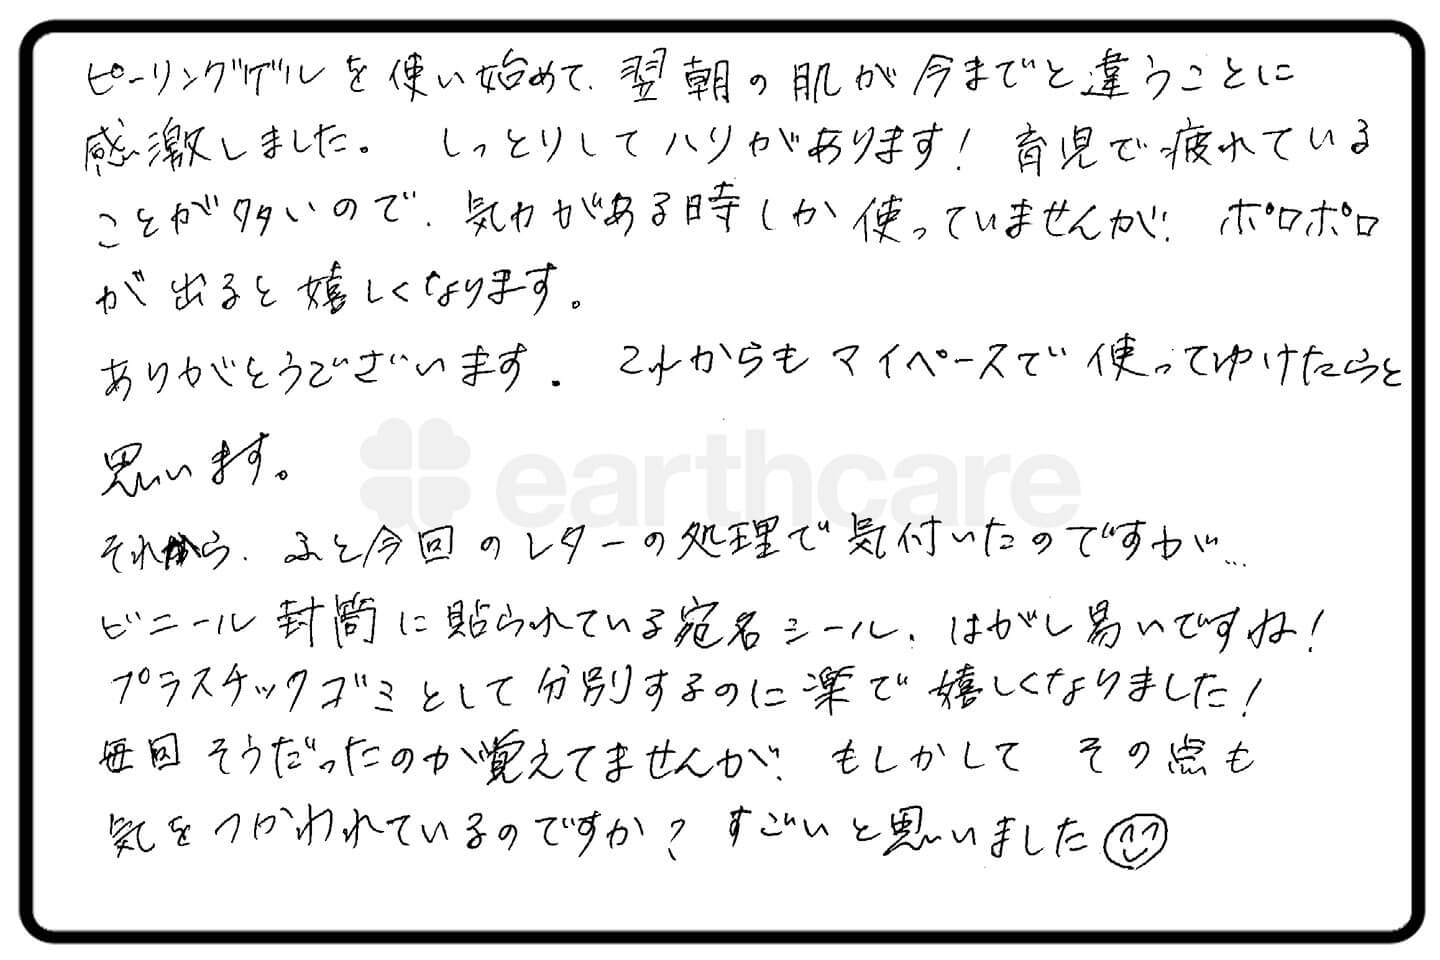 ピーリングゲルを使い始めて、翌朝の肌が今までと違うことに
感激しました。 しっとりしてハリがあります! 育児で疲れている
ことが多いので、気力がある時しか使っていませんが、ポロポロ
が出ると嬉しくなります。
ありがとうございます. これからもマイペースで使ってゆけたらと
思います。
earthcare
それから、ふと今回のレターの処理で気付いたのですが…
ビニール封筒に貼られている宛名シール、はがし易いですね!
プラスチックゴミとして分別するのに楽で嬉しくなりました!
毎回そうだったのか覚えてませんが、もしかして その点も
気をつかわれているのですか? すごいと思いました